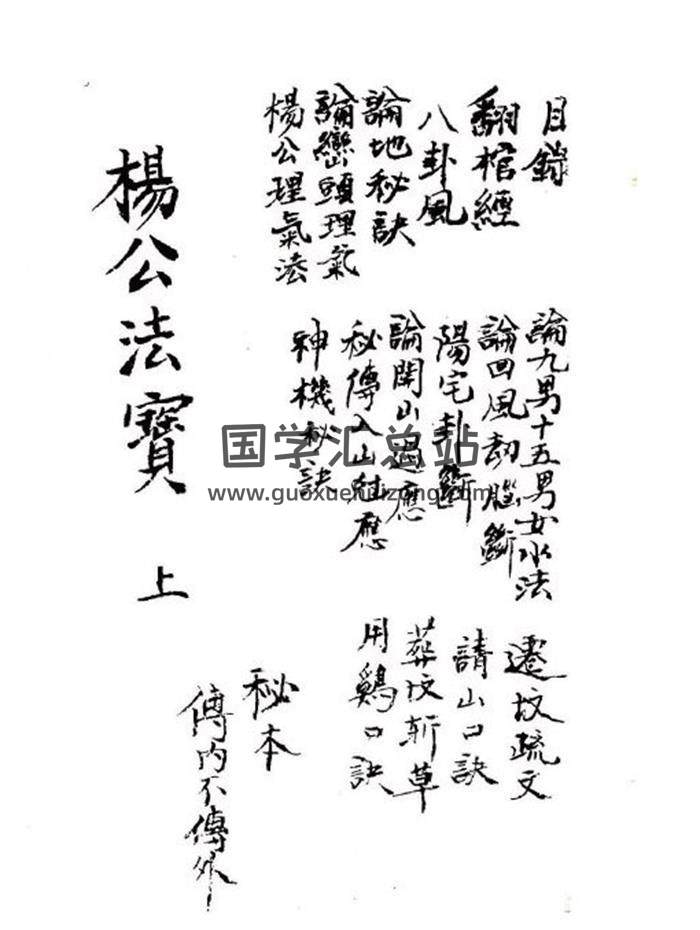 目錄
翻棺經
八卦風
論地秘訣
論巒頭理氣
楊公理氣法
論九男十五男女水法
論回風劫腦斷
陽宅卦斷
論開山遇應
秘傳入山尅應
神機秘訣
遷坟疏文
請山口訣
葬坟斬草
用鷄口訣
楊公法寶 上
秘本
傳內不傳外
国学汇总站
www.guoxuehuizong.com